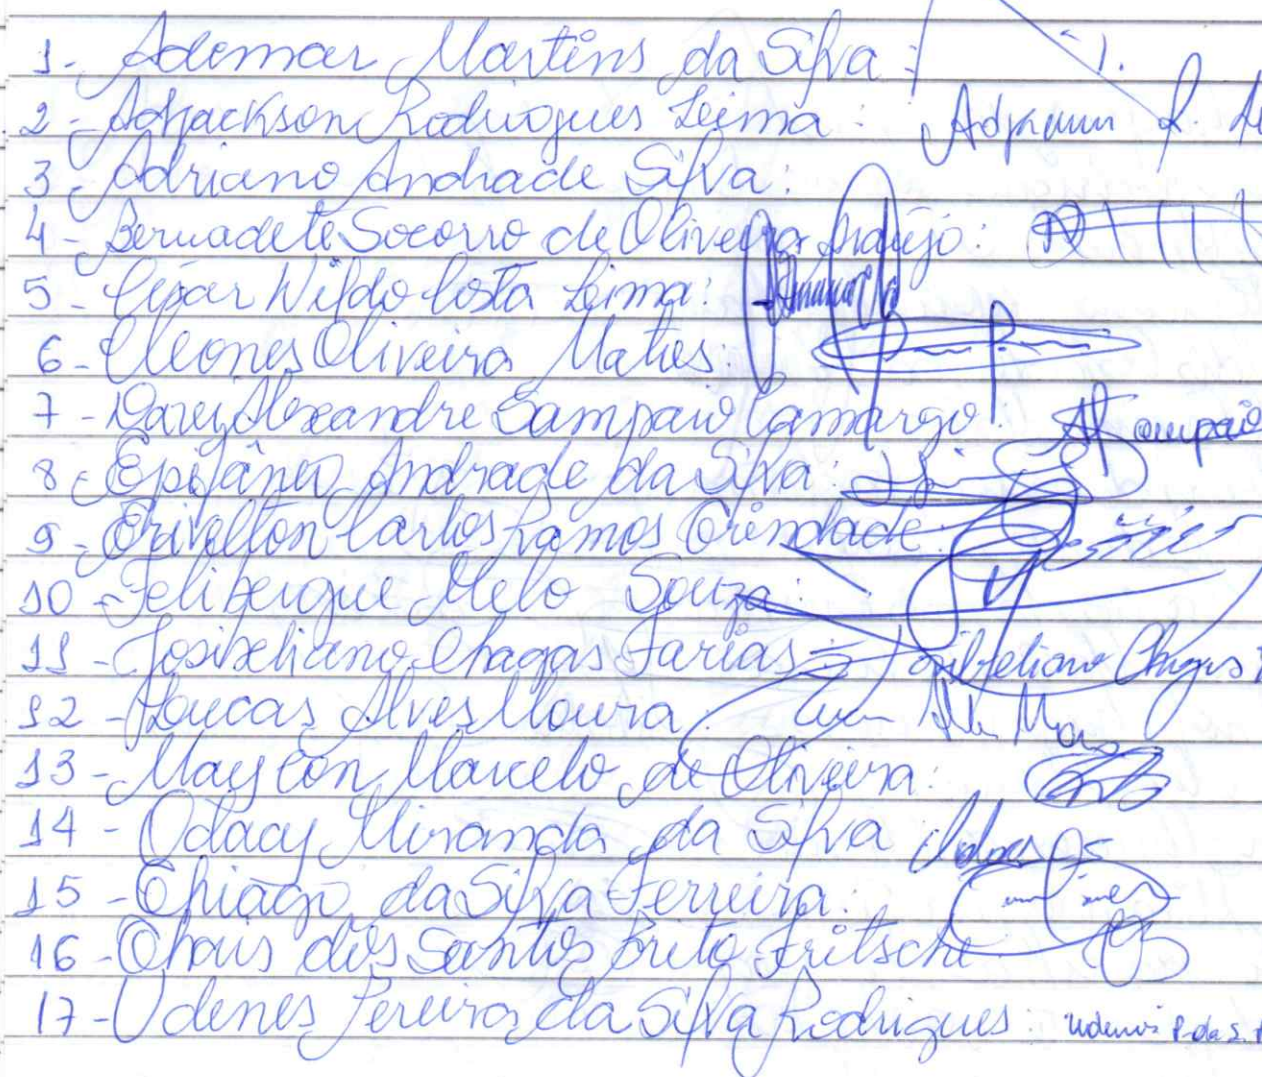 1- Ademar Martins da Silva:
2- Adjackson Rodrigues Leima:
3- Adriano Andrade Silva:
4- Bernadete Socorro de Oliveira Araújo:
5- César Wildo Costa Leima:
6- Cleones Oliveira Matos:
7- Darey Alexandre Sampaio Camargo: Sampaio
8- Epifâneo Andrade da Silva:
9- Erivelton Carlos Ramos Trindade:
10- Felibergue Melo Souza:
11- Josixeliano Chagas Farias Chagas
12- Loucas Alves Moura:
13- Maycon Marcelo de Oliveira:
14- Odacy Miranda da Silva
15- Thiago da Silva Ferreira:
16- Thais dos Santos Brito Fritsche
17- Udenes Pereira da Silva Rodrigues: P. da S.